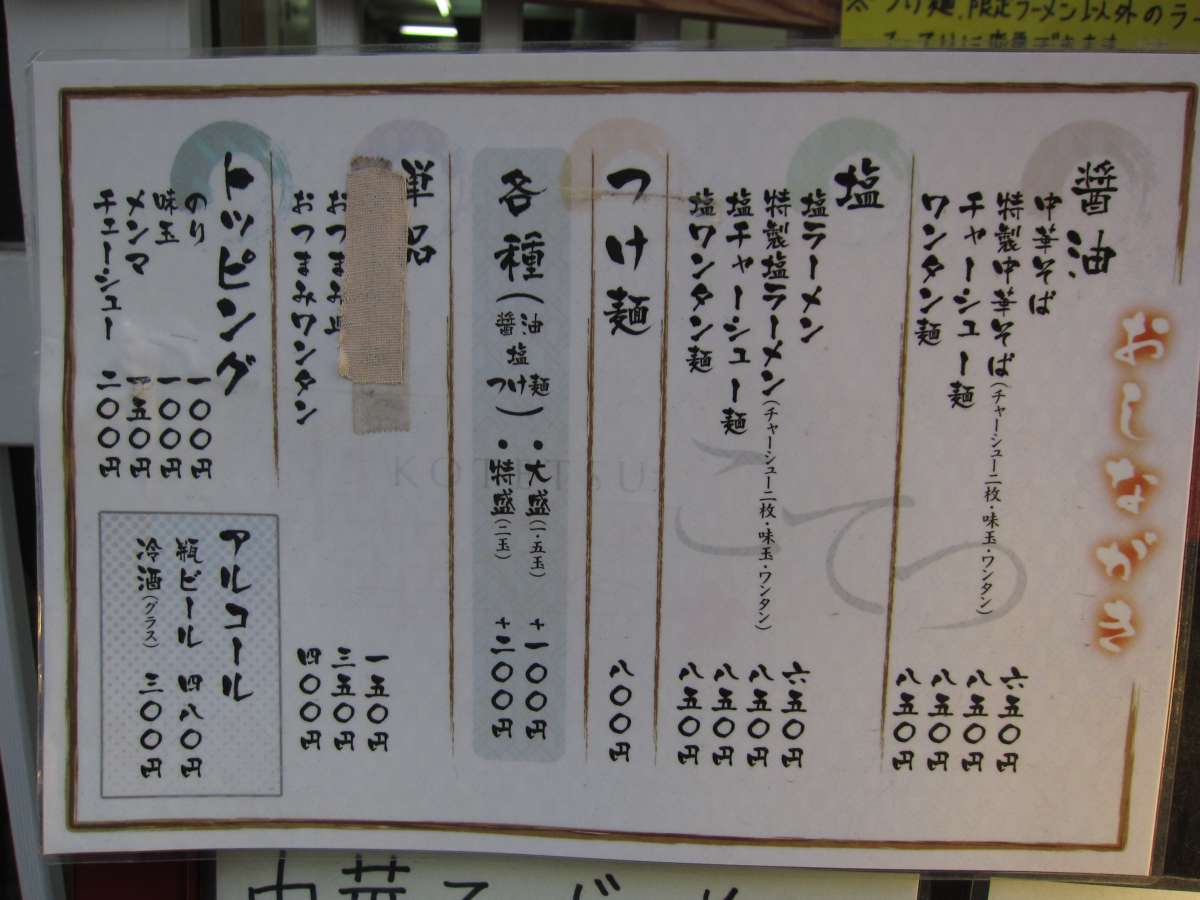 ※つけ麺、限定ラーメン以外のラ
おしながき
醤油
中華そば 六五〇円
特製中華そば(チャーシュー二枚・味玉・ワンタン) 八五〇円
チャーシュー麺 八五〇円
ワンタン麺 八五〇円
塩
塩ラーメン 六五〇円
特製塩ラーメン(チャーシュー二枚・味玉・ワンタン) 八五〇円
塩チャーシュー麺 八五〇円
塩ワンタン麺 八五〇円
つけ麺 八〇〇円
各種(醤油 塩 つけ麺)
・大盛(一・五玉) +一〇〇円
・特盛(二玉) +二〇〇円
単品
一五〇円
おつまみ 三五〇円
おつまみワンタン 四〇〇円
トッピング
のり 一〇〇円
味玉 一〇〇円
メンマ 一五〇円
チャーシュー 二〇〇円
アルコール
瓶ビール 四八〇円
冷酒(グラス) 三〇〇円
KOTETSU